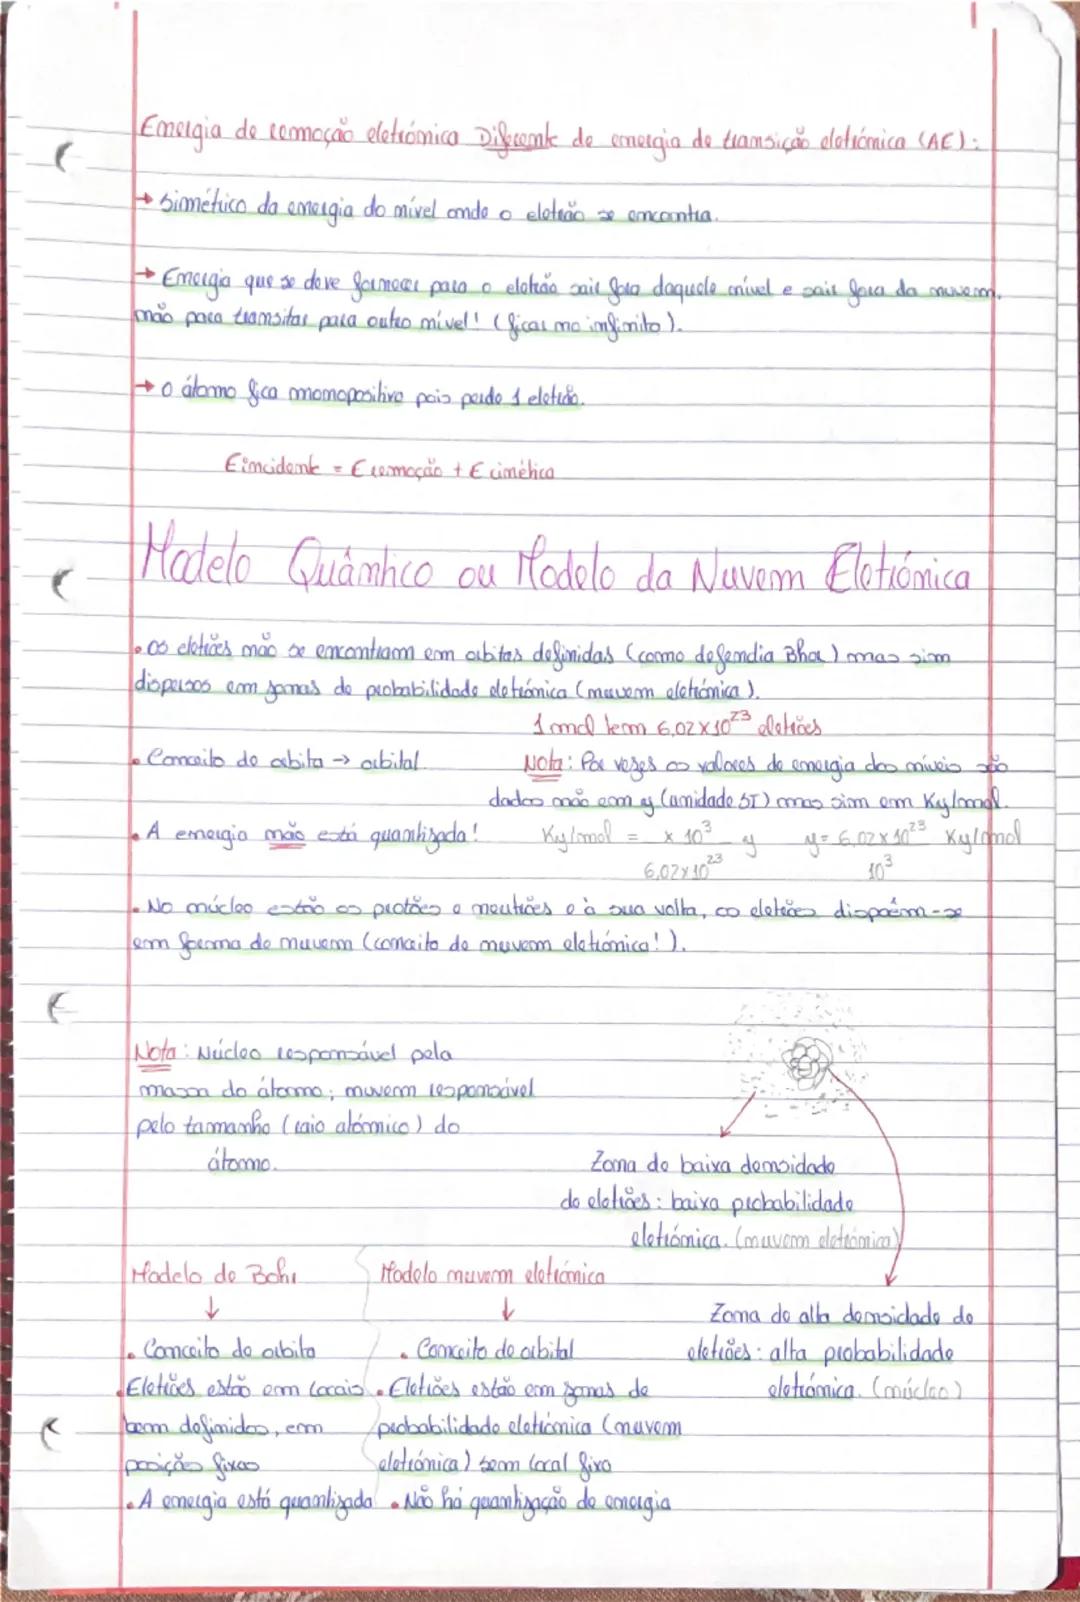 Energia de remoção eletrónica Diferente de energia de transição eletrónica (ΔE):
→ Simétrico da energia do nível onde o eletrão se encontra.
→ Energia que se deve fornecer para o eletrão sair fora daquele nível e sair fora da nuvem,
não para transitar para outro nível! (ficar no infinito).
→ O átomo fica monopositivo pois perde 1 eletrão.
Eincidente = Eremoção + E cinética
Modelo Quântico ou Modelo da Nuvem Eletrónica
• Os eletrões não se encontram em orbitas definidas (como defendia Bhor) mas sim
dispersos em zonas de probabilidade eletrónica (nuvem eletrónica).
1 mol tem 6,02x10²³ eletrões
• Conceito de orbita → orbital.
Nota: Por vezes os valores de energia dos níveis são
dados não em J (unidade SI) mas sim em KJ/mol.
• A energia não está quantizada!
KJ/mol = x 10³ J J = 6,02x10²³ KJ/mol
6,02x10²³ 10³
• No núcleo estão os protões e neutrões e à sua volta, os eletrões dispoêm-se
em forma de nuvem (conceito de nuvem eletrónica!).
Nota: Núcleo responsável pela
massa do átomo; nuvem responsável
pelo tamanho (raio atómico) do
átomo.
Zona de baixa densidade
de eletrões: baixa probabilidade
eletrónica. (nuvem eletrónica)
Zona de alta densidade de
eletrões: alta probabilidade
eletrónica. (núcleo)
Modelo de Bohr
↓
• Conceito de orbita
• Eletrões estão em locais
bem definidos, em
posições fixas
• A energia está quantizada
Modelo nuvem eletrónica
↓
• Conceito de orbital
• Eletrões estão em zonas de
probabilidade eletrónica (nuvem
eletrónica) sem local fixo
• Não há quantização de energia